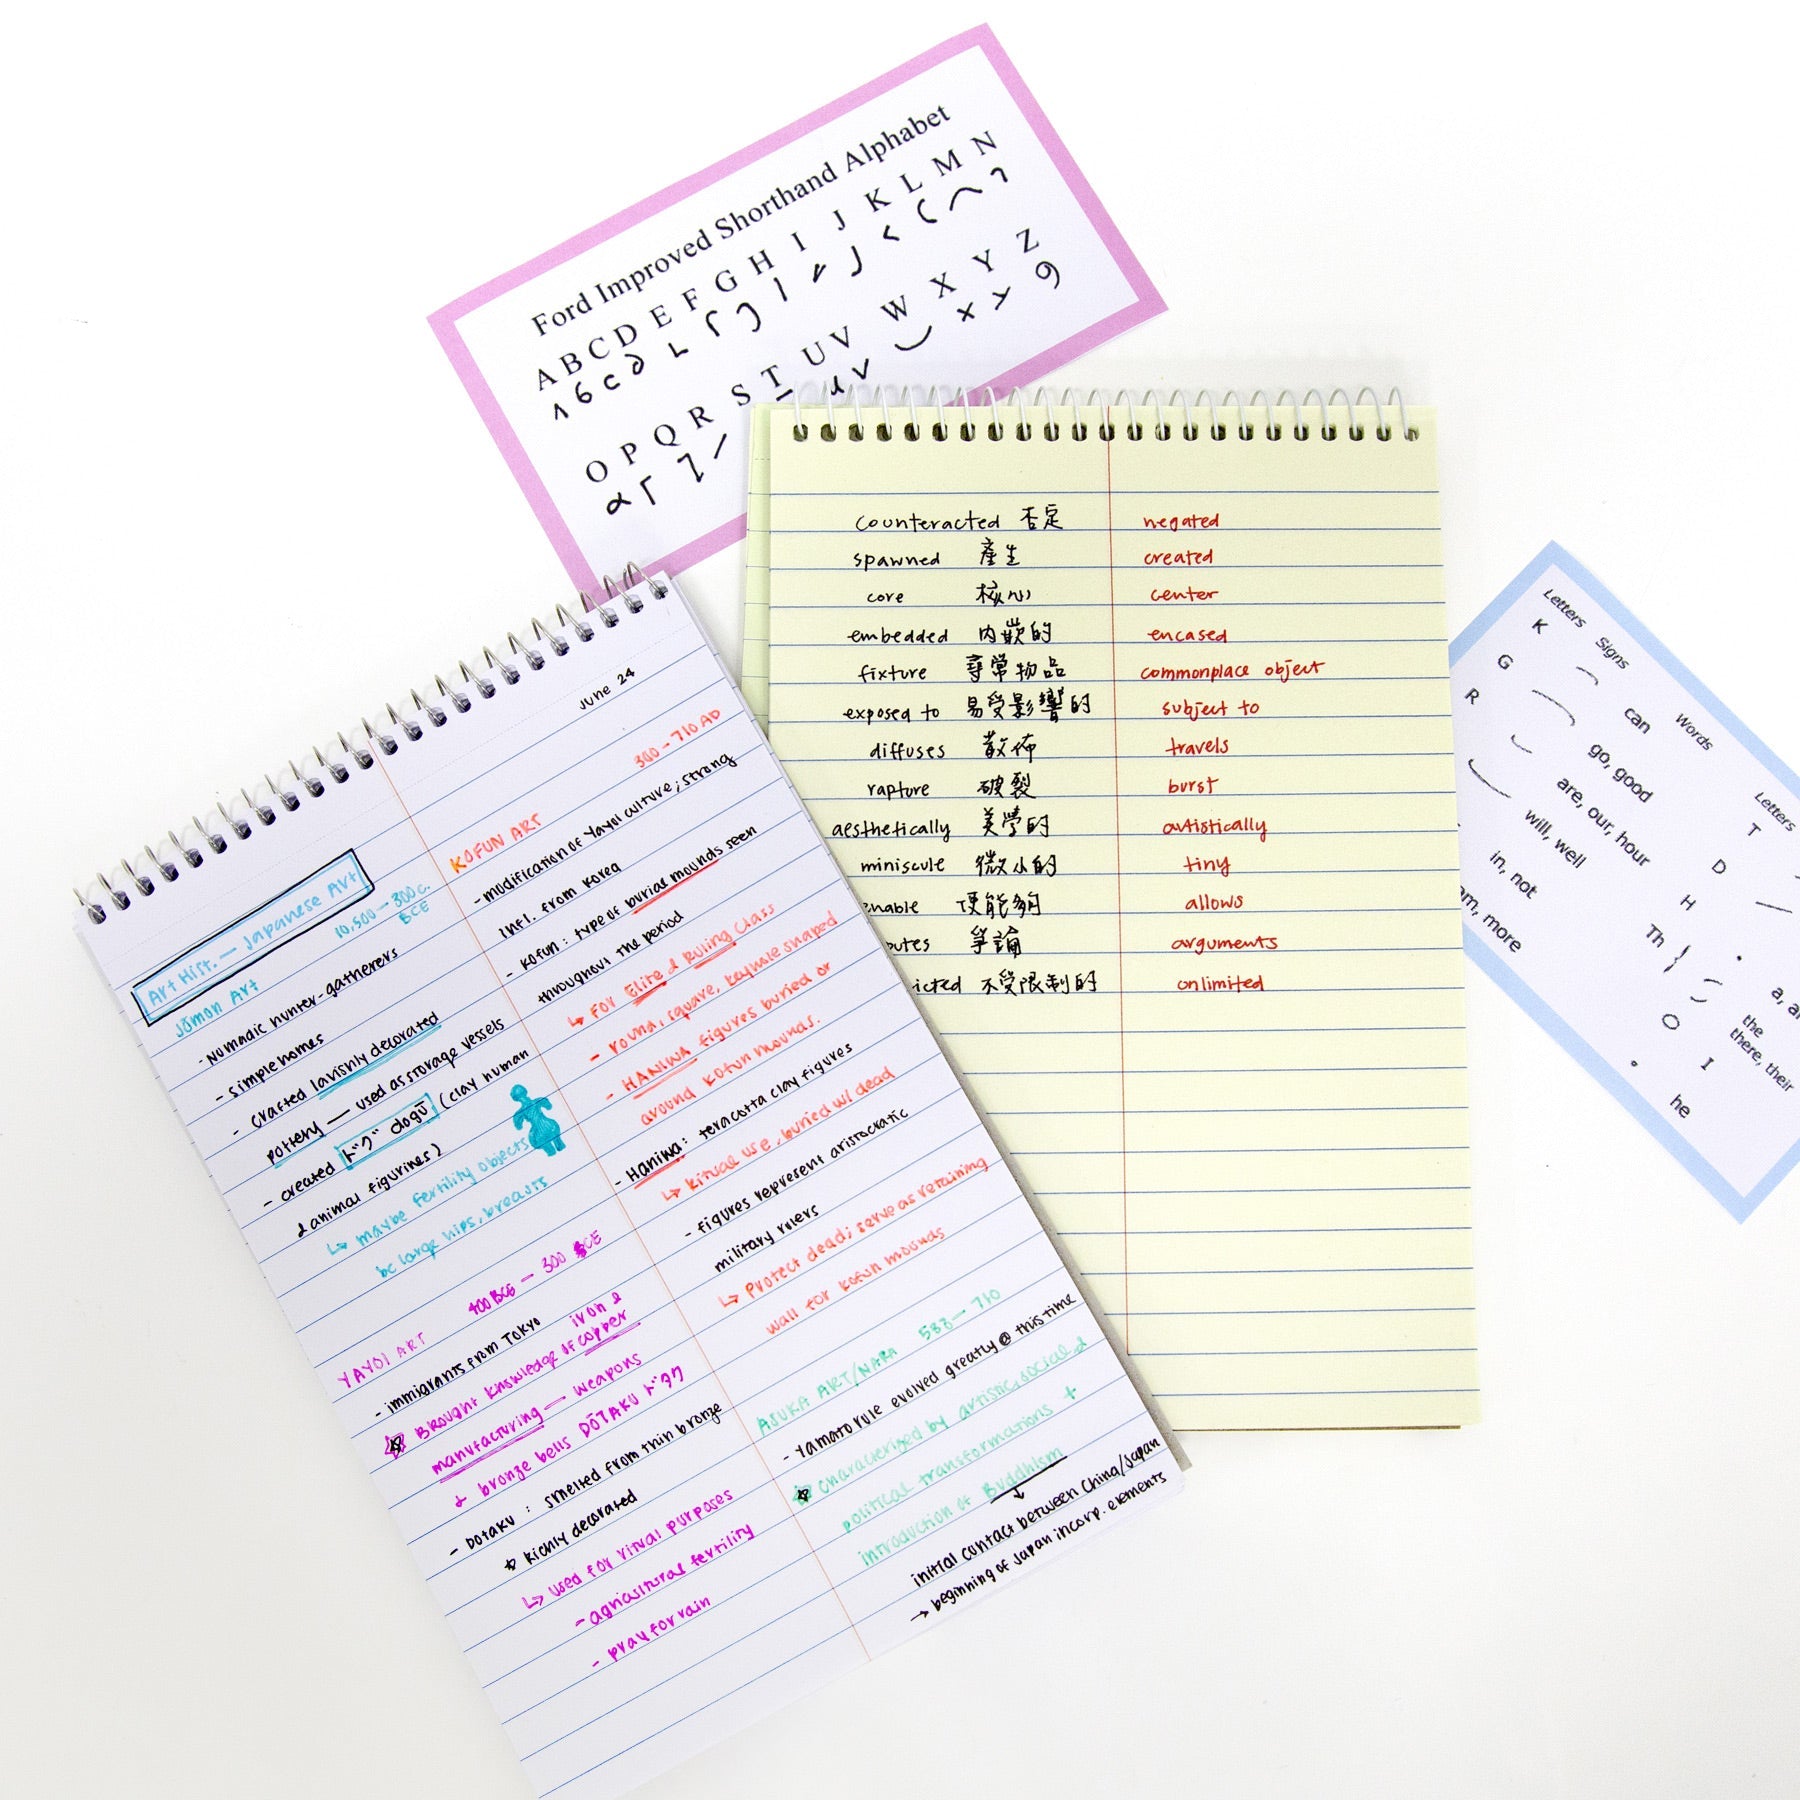 Ford Improved Shorthand Alphabet
A B C D E F G H I J K L M N
O P Q R S T U V W X Y Z
counteracted 否定 negated
spawned 產生 created
core 核心 center
embedded 內嵌的 encased
fixture 尋常物品 commonplace object
exposed to 易受影響的 subject to
diffuses 散佈 travels
rapture 破裂 burst
aesthetically 美學的 artistically
miniscule 微小的 tiny
enable 使能夠 allows
putes 爭論 arguments
icted 不受限制的 unlimited
June 24
Art Hist. — Japanese Art
Jōmon Art 10,500 — 300 c. BCE
- Nomadic hunter-gatherers
- simple homes
- crafted lavishly decorated
pottery — used as storage vessels
- created ドグ dogū (clay human
& animal figurines)
↳ maybe fertility objects
bc large hips, breasts
YAYOI ART 400 BCE — 300 BCE
- immigrants from Tokyo
☆ Brought knowledge of iron & copper
manufacturing — weapons
& bronze bells DŌTAKU ドタク
- DOTAKU : smelted from thin bronze
☆ Richly decorated
↳ used for ritual purposes
- agricultural fertility
- pray for rain
KOFUN ART 300 - 710 AD
- modification of Yayoi culture; strong
infl. from Korea
- Kofun : type of burial mounds seen
throughout the period
↳ For Elite & Ruling class
- round, square, keyhole shaped
- HANIWA figures buried or
around kofun mounds.
- Haniwa: teracotta clay figures
↳ Ritual use, buried w/ dead
- figures represent aristocratic
military rulers
↳ Protect dead; serve as retaining
wall for kofun mounds
ASUKA ART/NARA 538 — 710
- Yamato rule evolved greatly @ this time
☆ characterized by artistic, social, &
political transformations +
introduction of Buddhism
↓
initial contact between China/Japan
→ beginning of Japan incorp. elements
Letters Signs Words Letters
K can
G go, good
R are, our, hour
will, well
in, not
am, more
T
D
H
Th
O
I
the
there, their
he